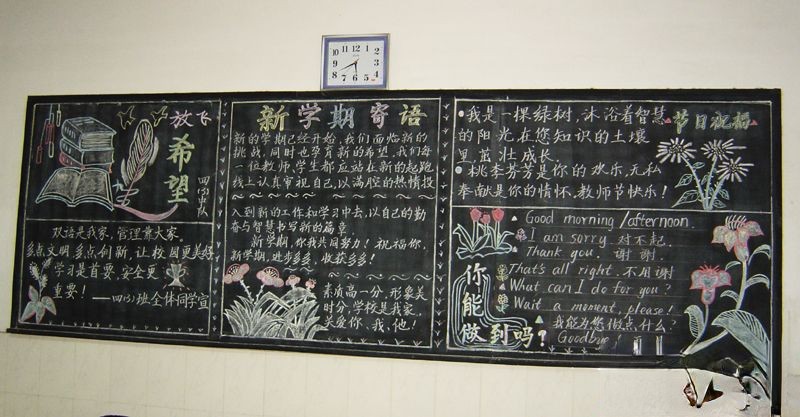 放飞
希望
四(3)中队
双语是我家,管理靠大家。
多点文明,多点创新,让校园更美好
学习是首要,安全更
重要!
——四(3)班全体同学宣
新学期寄语
新的学期已经开始,我们面临新的
挑战,同时也孕育新的希望,我们每
一位教师,学生都应站在新的起跑
线上认真审视自己,以满腔的热情投
入到新的工作和学习中去,以自己的勤
奋与智慧书写新的篇章
新学期,你我共同努力!祝福你,
新学期,进步多多,收获多多!
素质高一分,形象美
时分,学校是我家,
关爱你、我、他!
节日祝福
我是一棵绿树,沐浴着智慧
的阳光在您知识的土壤
里,茁壮成长.
桃李芬芳是你的欢乐,无私
奉献是您的情怀,教师节快乐!
Good morning/afternoon.
I am sorry. 对不起.
Thank you. 谢谢.
That's all right. 不用谢
What can I do for you?
Wait a moment, please!
我能为您做点什么?
Goodbye!
你能做到吗?
12 1 2 3 4 5 6 7 8 9 10 11